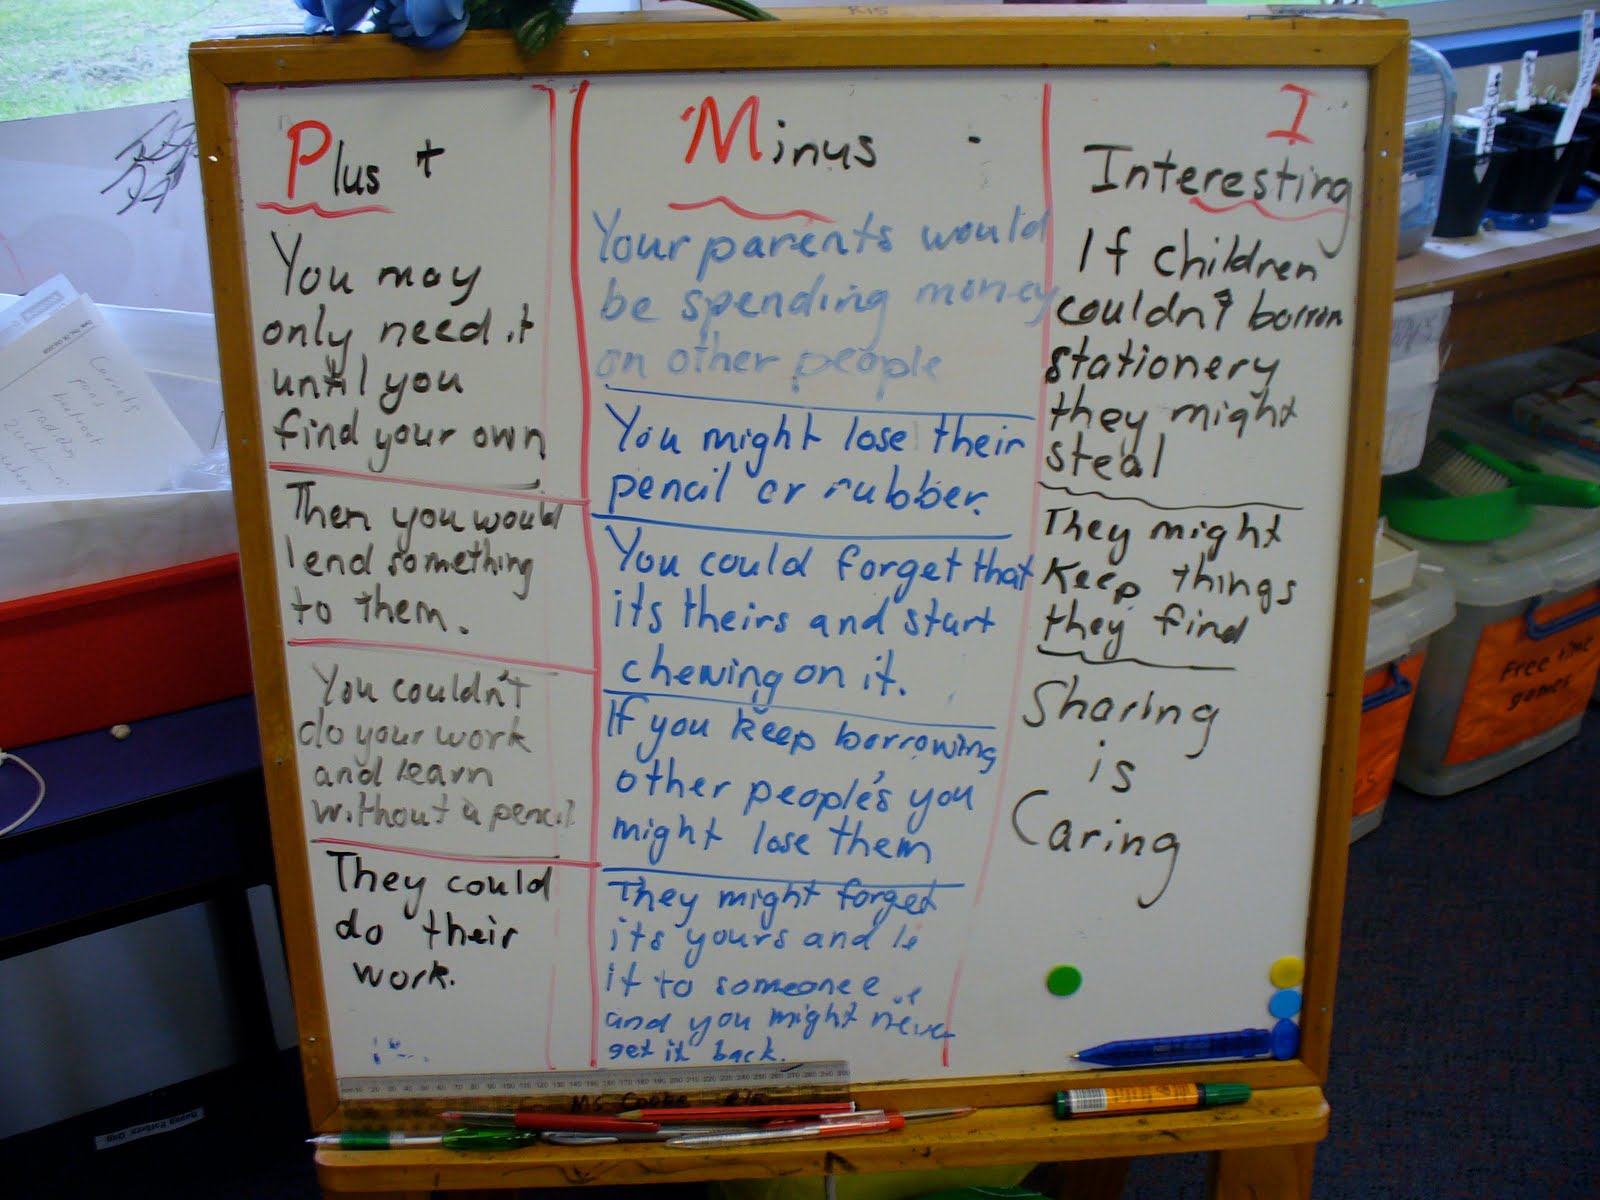 R15
Plus +
You may
only need it
until you
find your own
Then you would
lend something
to them.
You couldn't
do your work
and learn
without a pencil
They could
do their
work.
Minus -
Your parents would
be spending money
on other people
You might lose their
pencil or rubber.
You could forget that
its theirs and start
chewing on it.
If you keep borrowing
other people's you
might lose them
They might forget
its yours and le
it to someone e
and you might never
get it back.
I
Interesting
If children
couldn't borrow
stationery
they might
steal
They might
keep things
they find
Sharing
is
Caring
Ms Cooke
Carrots
peas
beetroot
radish
Free time
games